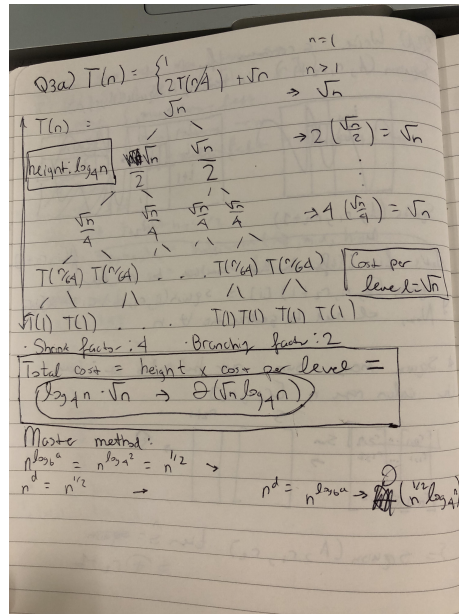 n=1
Q3a) T(n) = { 1
2T(n/4) + √n n>1
√n → √n
T(n) =
height: log₄n √n/2 √n/2 → 2(√n/2) = √n
√n/4 √n/4 √n/4 √n/4 → 4(√n/4) = √n
T(n/64) T(n/64) . . . T(n/64) T(n/64) Cost per
level = √n
T(1) T(1) . . . T(1) T(1) T(1) T(1)
· Shrink factor: 4 · Branching factor: 2
Total cost = height x cost per level =
log₄n · √n → Θ(√n log₄n)
Master method:
n^(log_b a) = n^(log₄2) = n^(1/2) →
n^d = n^(1/2) → n^d = n^(log_b a) → Θ(n^(1/2) log₄n)